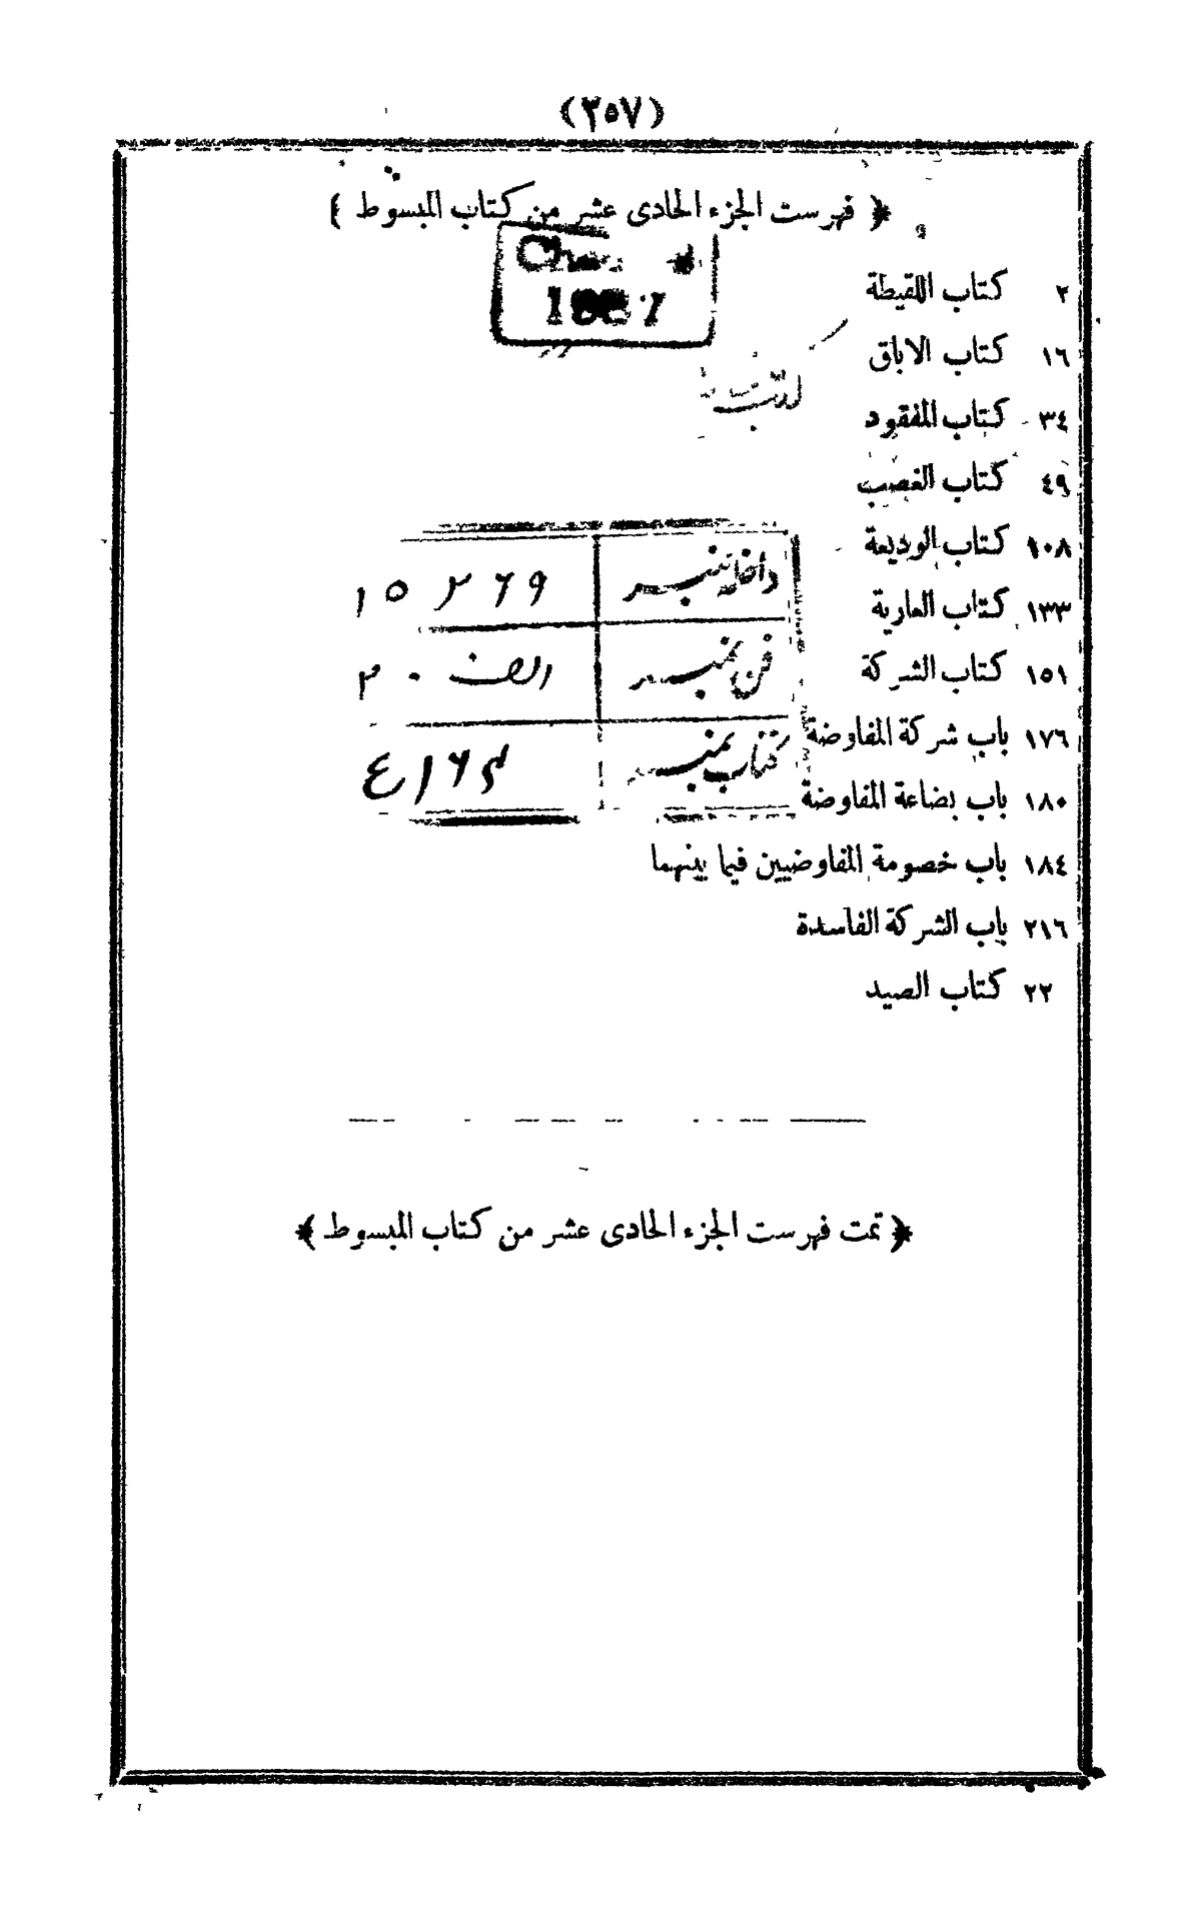 (٢٥٧)
﴿ فهرست الجزء الحادى عشر من كتاب المبسوط ﴾
1887
٢ كتاب اللقيطة
١٦ كتاب الاباق
٣٤ كتاب المفقود
٤٩ كتاب الغصب
١٠٨ كتاب الوديعة
١٣٣ كتاب العارية
١٥١ كتاب الشركة
١٧٦ باب شركة المفاوضة
١٨٠ باب بضاعة المفاوضة
١٨٤ باب خصومة المفاوضيين فيما بينهما
٢١٦ باب الشركة الفاسدة
٢٢ كتاب الصيد
داخلہ نمبر
فن نمبر
کتاب نمبر
﴿ تمت فهرست الجزء الحادى عشر من كتاب المبسوط ﴾